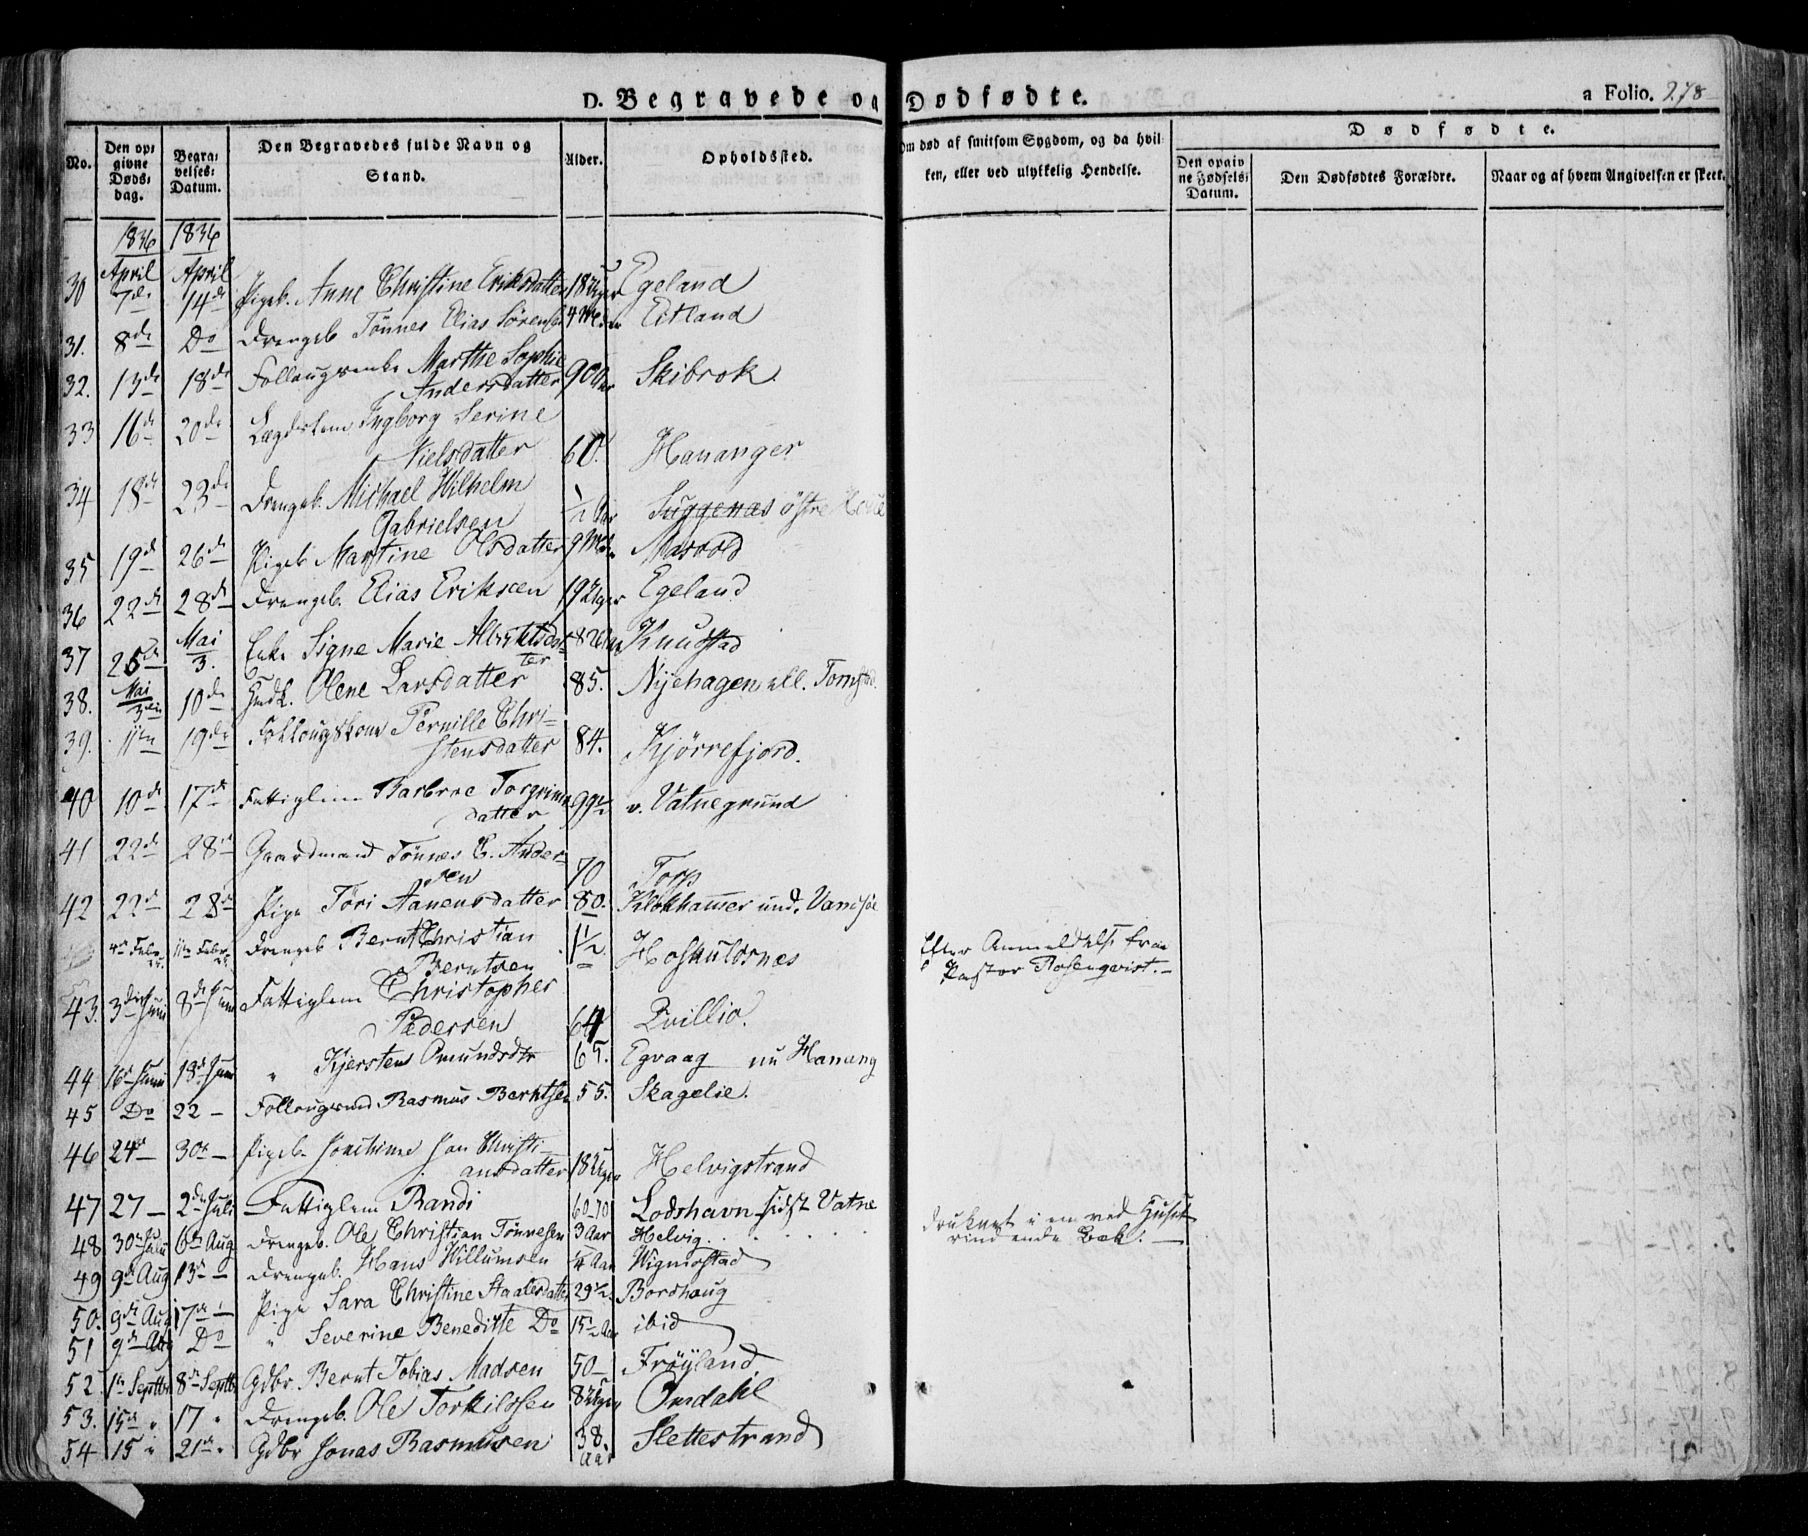 D. Begravede og Dødfødte. a Folio. 278
No. Den opgivne Dødsdag. Begravelses Datum. Den Begravedes fulde Navn og Stand. Alder. Opholdssted. Om død af smitsom Sygdom, og da hvilken, eller ved ulykkelig Hendelse. Dødfødte. Den opgivne Fødsels Datum. Den Dødfødtes Forældre. Naar og af hvem Angivelsen er skeet.
1836 1836
April April
30 7de 14de Pigeb. Anne Christine Eriksdatter 18 Uger Egeland
31. 8de Do Drengeb Tönnes Elias Sörensen 4 Eitland
32. 13de 18de Marthe Sophie
Andersdatter 90 Aar Skibrok.
33 16de 20de Lægdslem Ingborg Serine
Nielsdatter 60. Hananger
34 18de 23de Drengeb. Michael Wilhelm
Gabrielsen ½ Aar Suggenæs östre
35 19de 26de Pigeb Martine Olsdatter 9
36 22de 28de Drengeb. Elias Eriksen 19 Uger Egeland
37 26de Mai 3. Enke Signe Marie Albrektsdat-
ter 82 Aar Knudstad
38. Mai 3die 10de Olene Larsdatter 85. Nyehagen ell. Tomstad.
39. 11te 19de Follougskone Pernille Chri-
stensdatter 84. Kjörrefjord.
40 10de 17de Fattiglem Barbroe Torgrims
datter 99½ v. Vatnegrund
41 22de 28de Gaardmand Tönnes C. Ander-
sen 70 Torp
42 22de 28de Pige Töri Aanensdatter 80. Klokhamer und. Vansöe
4de Febr. 11te Febr. Drengeb Bernt Christian
Berntsen 1½ Hoskuldsnæs Efter Anmeldelse fra
Pastor Rosenqvist.-
43. 3die Juni 8de Juni Fattiglem Christopher
Pedersen 64 Qvillio.
44 16de Juni 18de Juni " Kjersten Omundsdtr 65. Egvaag nu Hanang
45 Do 22 - Rasmus Berntsen 55. Skagelie.
46 24de - 30te - Pigeb. Joachime Jon Christi-
ansdatter 18 Uger Helvigstrand
47 27 - 2de Juli Fattiglem Randi 60-70 Lodshavn sidst Vatne
48 30te Juli 6te Aug Drengeb. Ole Christian Tönnesen 3 Aar Helvig druknet i en ved Huset
rindende Bæk. -
49 9de Aug 13de - Drengeb. Hans Willumsen ¼ Aar Wigmostad
50. 9de Aug 17de - Pige Sara Christine Staalesdatter 29½. Bordhaug
51 9de Aug Do " Severine Benedikte Do 15½ Aar ibid
52. 1te Septbr 8de Septbr Gdbr. Bernt Tobias Madsen 50 - Fröyland
53. 15de " 17 " Drengeb. Ole Torkildsen 8 Uger Omdahl
54 15 " 21de " Gdbr Jonas Rasmusen 38. Aar Slettestrand